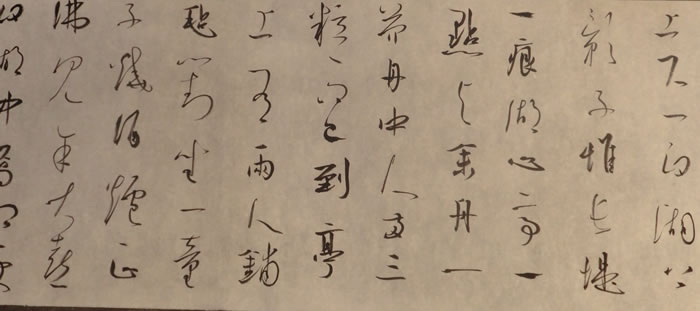 上下一白湖上
影子惟長堤
一痕湖心亭一
點與余舟一
芥舟中人兩三
粒而已到亭
上有兩人鋪
氈對坐一童
子燒酒爐正
沸見余大喜
曰湖中焉得更